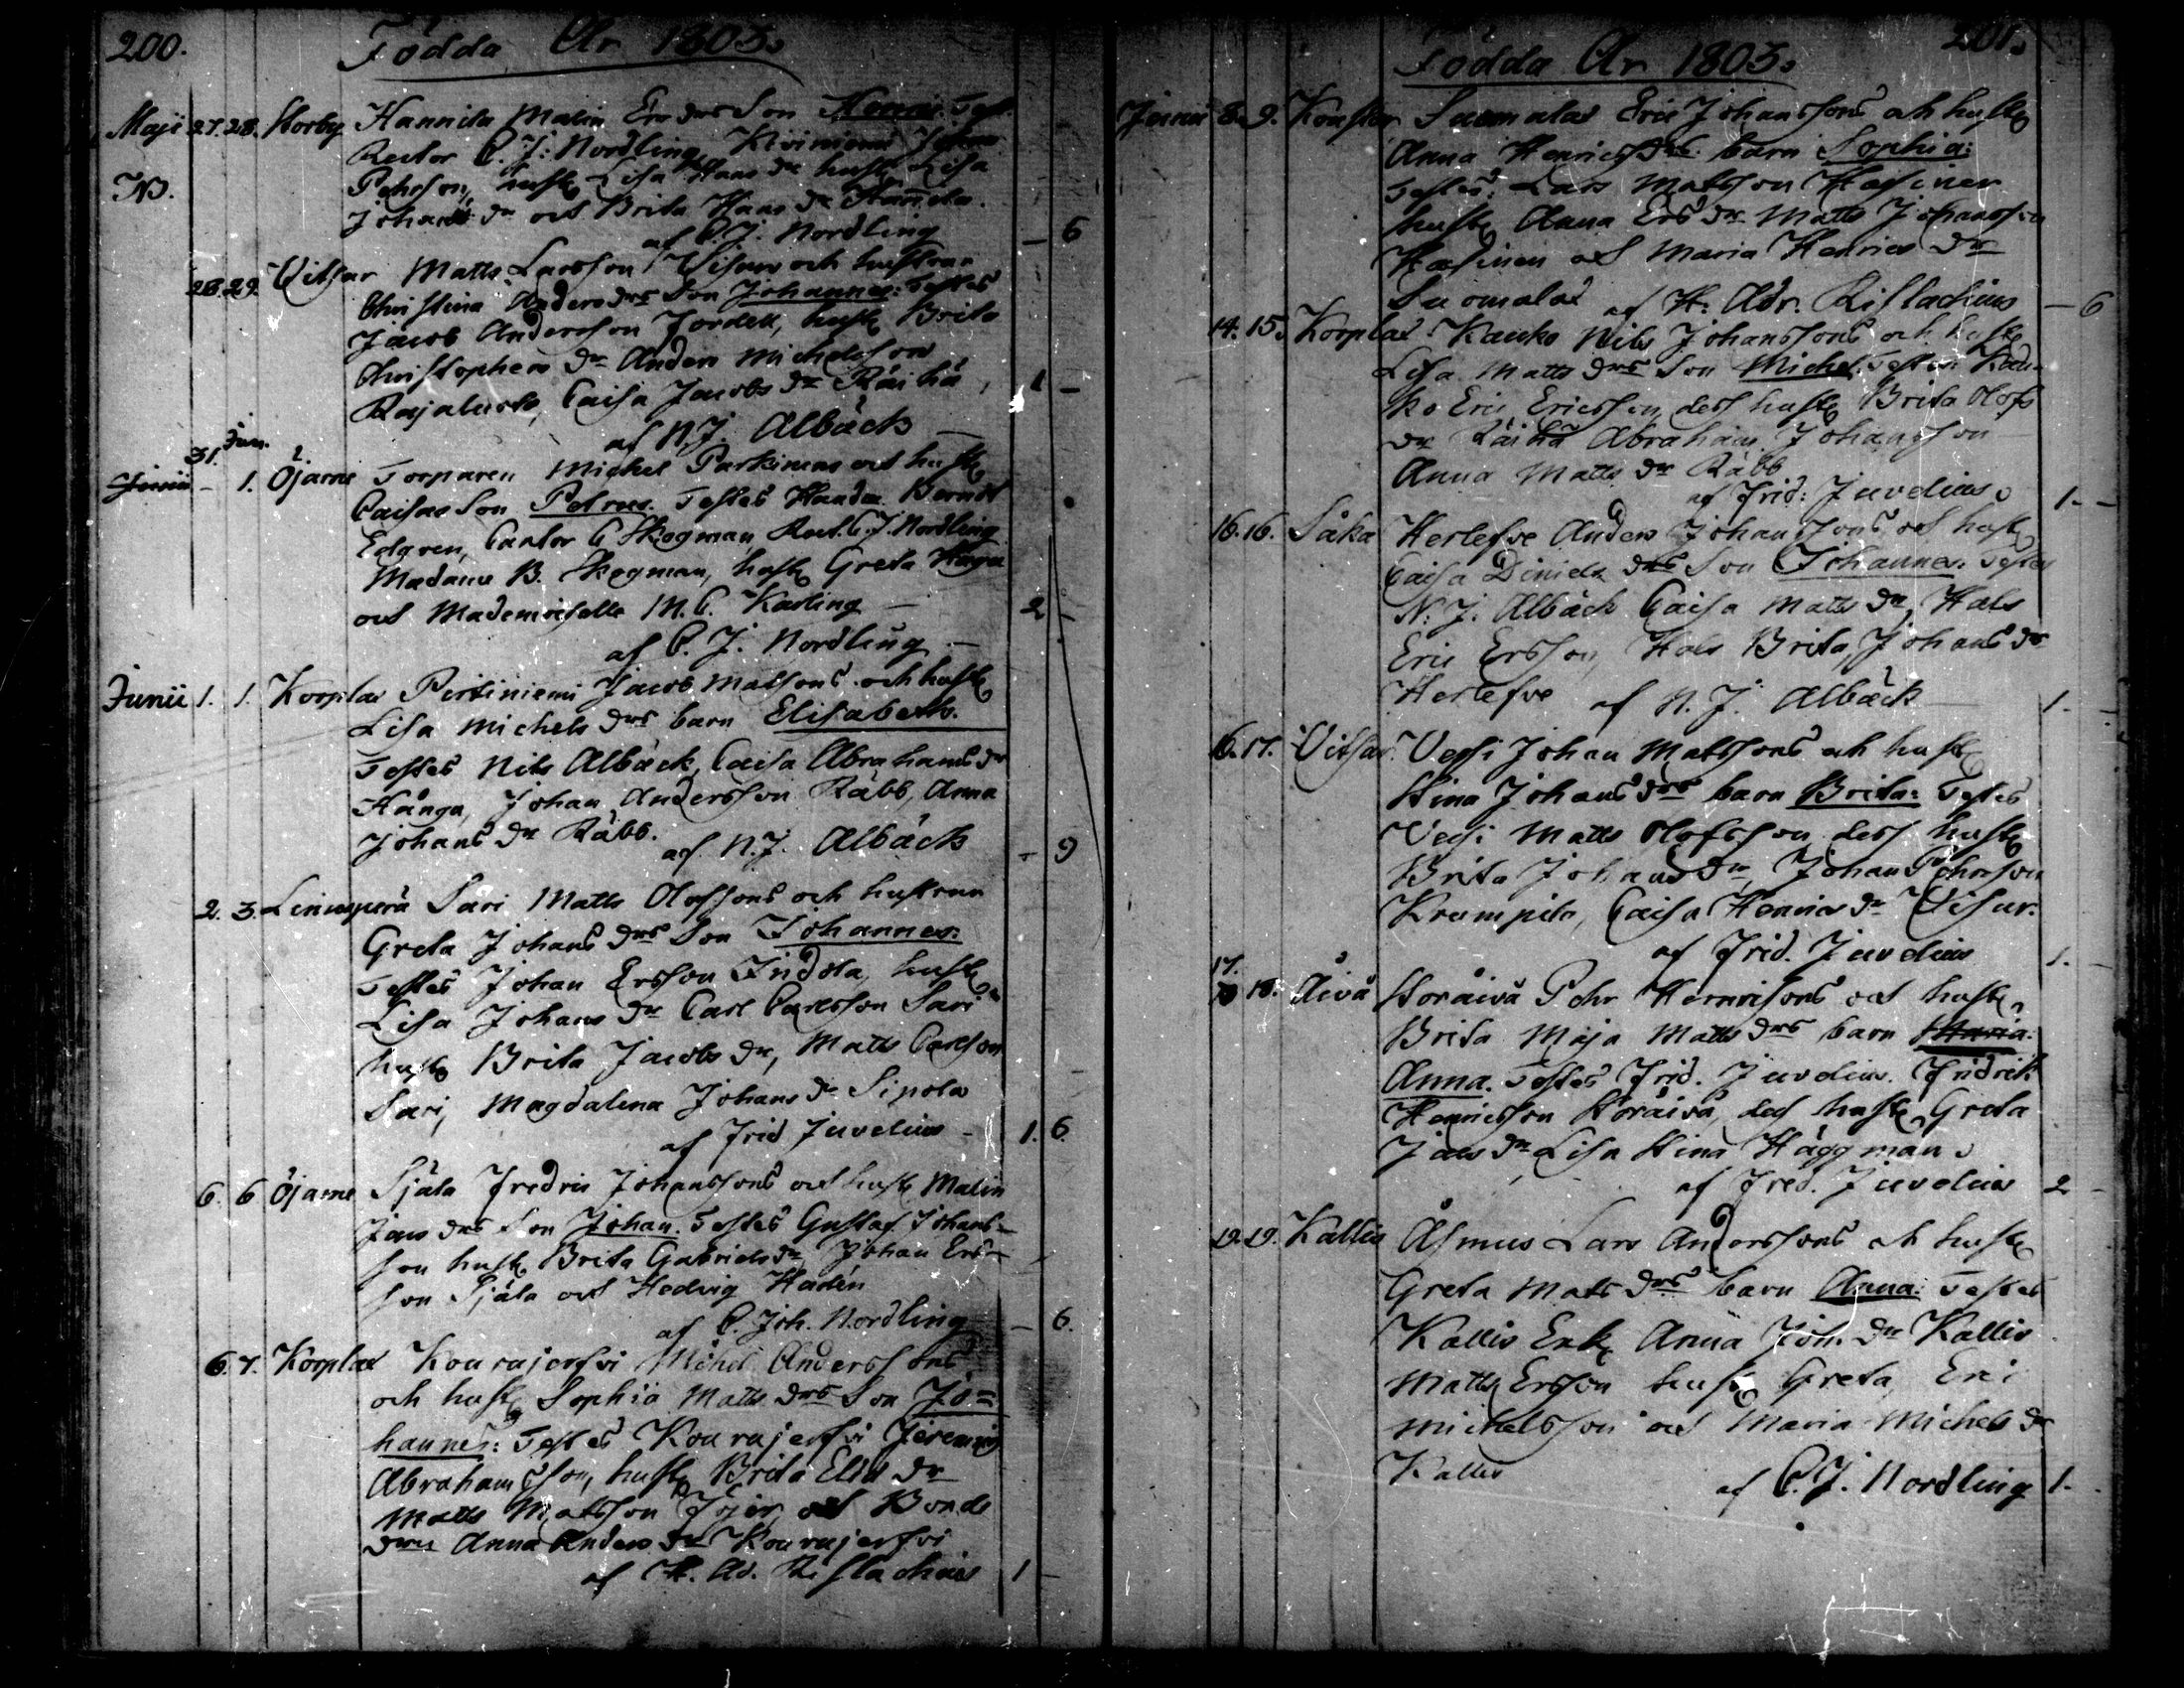 200.
Födda År 1803.
Maji 27. 28. Storby Hannila Malin Ers drs Son Henric. Test.
Rector C. J. Nordling Kiviniemi Johan
NB. Pehrson, hustr Lisa Hans dr hustr Lisa
Johans dr och Brita Hans dr Hannila.
af C. J. Nordling — 6
28. 29. Vitsar Matts Larsson Visurs och hustrun
Christina Anders drs Son Johannes: Testes
Jacob Andersson Jordell, hustr Brita
Christophers dr Anders Michelsson
Rajalucko, Caisa Jacobs dr Räihä, 1 —
af N. J. Albäck —
31. Jun.
Junii – 1. Öjarne Torparen Michel Parkinens och hustr
Caisas Son Petrus. Testes Handn Berndt
Edgren, Cantor C Skogman, Rect. C. J. Nordling
Madame B. Skogman, hustr Greta Haga
och Mademoiselle M. C. Karling — 2 –
af C. J. Nordling —
Junii 1. 1. Korplax Pertiniemi Jacob Matsons och hustr
Lisa Michels drs barn Elisabeth.
Testes Nils Albäck, Caisa Abrahams dr
Hånga, Johan Andersson Räbb, Anna
Johans dr Räbb. af N. J. Albäck – 9
2. 3. Linusperä Sari Matts Olofssons och hustrun
Greta Johans drs Son Johannes:
Testes Johan Ersson Indola, hustr
Lisa Johans dr Carl Carlsson Sari
hustr Brita Jacobs dr, Matts Carlson
Sari, Magdalena Johans dr Sipola
af Frid Juvelius – 1. 6.
6. 6 Öjarne Själa Fredric Johanssons och hustr Malin
Jans drs Son Johan. Testes Gustaf Johans-
son hustr Brita Gabriels dr Johan Ers-
son Själa och Hedvig Hadén
af C. Joh. Nordling — 6.
6. 7. Korplax Kourajerfvi Michel Anderssons
och hustr Sophia Matts drs Son Jo=
hannes: Testes Kourajerfvi Jeremias
Abrahamsson, hustr Brita Elia dr
Matts Matsson Jojer och Bonde
drn Anna Anders dr Kourajerfvi
af H. Ad. Rislachius 1 –
201.
Födda År 1803.
Junii 8. 9. Suomalas Eric Johanssons och hustr
Anna Henrics drs barn Sophia:
Testes: Lars Matsson Hasinen
hustr Anna Ers dr Matts Johansson
Hasinen och Maria Henrics dr
Suomalas af H. Adr. Rislachius — 6
14. 15. Korplax Kauko Nils Johanssons och hustr
Lisa Matts drs Son Michel. Testes: Kau-
ko Eric Ericsson, dess hustr Brita Olofs
dr Räihä Abraham Johansson
Anna Matts dr Räbb
af Frid: Juvelius. 1. –
16. 16. Såka Herlefve Anders Johanssons och hustr
Caisa Daniels drs Son Johannes. Testes
N. J. Albäck Caisa Matts dr Hals
Eric Ersson, Hals Brita Johans dr
Herlefve af N. J. Albäck — 1. –
16. 17. Vitsar. Vessi Johan Matssons och hustr
Stina Johans drs barn Brita: Testes
Vessi Matts Olofsson dess hustr
Brita Johans dr, Johan Pehrson
Krumpila, Caisa Henrics dr Visur.
af Frid. Juvelius 1. –
17.
18. Åivå Storåivå Pehr Henricsons och hustr
Brita Maja Matts drs barn Maria:
Anna. Testes Frid. Juvelius. Fridrik
Henricsson Storåivå, dess hustr Greta
Jans dr Lisa Stina Häggman.
af Fred. Juvelius 2 –
19. 19. Kallis Åsmus Lars Anderssons och hustr
Greta Mats drs barn Anna: Testes
Kallis Enk Anna Joh. dr Kallis
Matts Ersson hustr Greta, Eric
Michelsson och Maria Michels dr
Kallis
af C. J. Nordling 1.